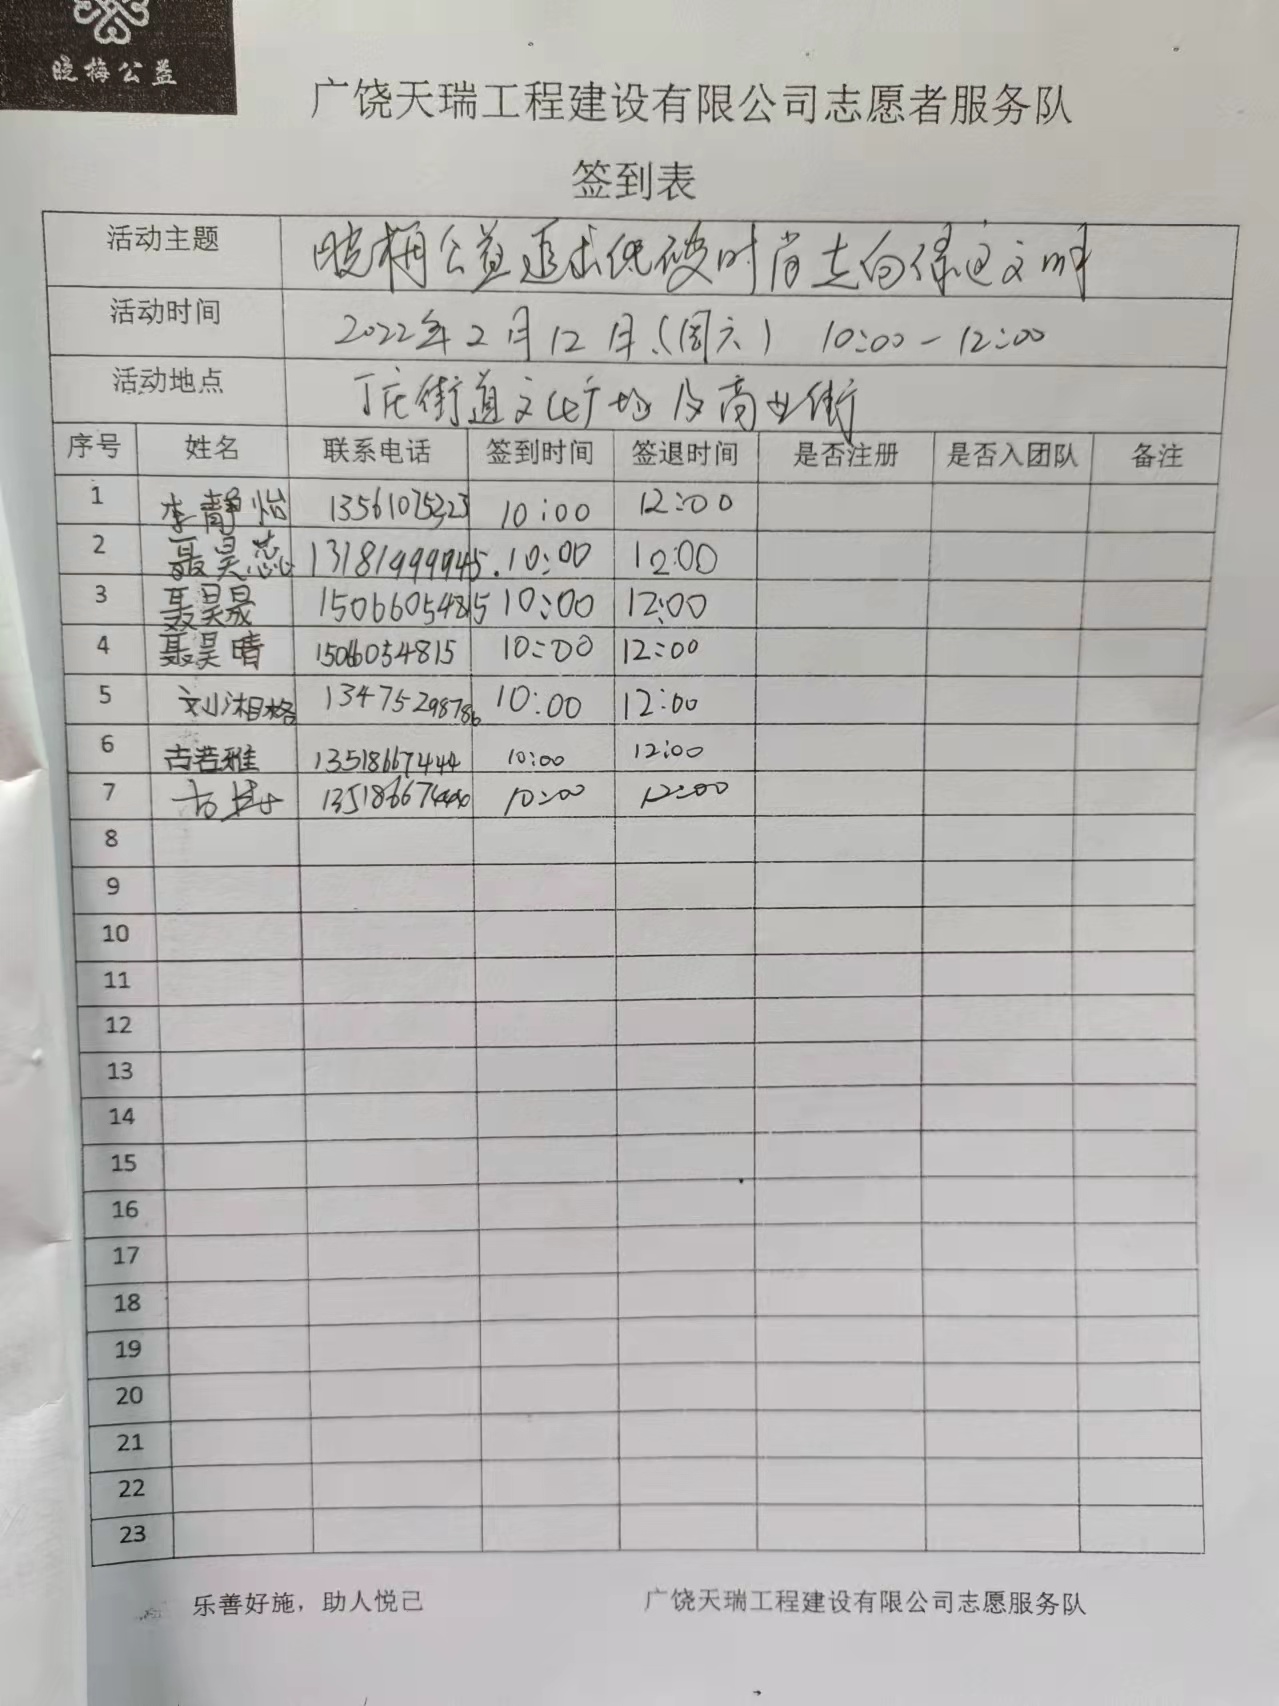 晓梅公益
广饶天瑞工程建设有限公司志愿者服务队
签到表
活动主题 晓梅公益追求低碳时尚走向绿色文明
活动时间 2022年2月12日(周六) 10:00-12:00
活动地点 丁庄街道文化广场及商业街
序号 姓名 联系电话 签到时间 签退时间 是否注册 是否入团队 备注
1 李静怡 13561075323 10:00 12:00
2 聂昊蕊 13181999945. 10:00 12:00
3 聂昊晟 15066054815 10:00 12:00
4 聂昊晴 15066054815 10:00 12:00
5 刘湘格 13475298786 10:00 12:00
6 古若雅 13518667444 10:00 12:00
7 10:00 12:00
8
9
10
11
12
13
14
15
16
17
18
19
20
21
22
23
乐善好施，助人悦己 广饶天瑞工程建设有限公司志愿服务队